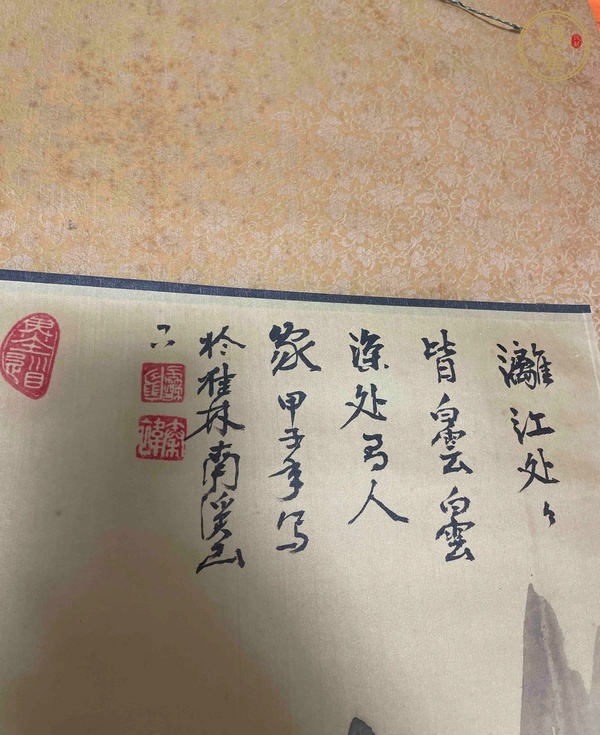 灕江处々
皆白雲白雲
深处有人
家 甲子年写
於桂林南溪山
下